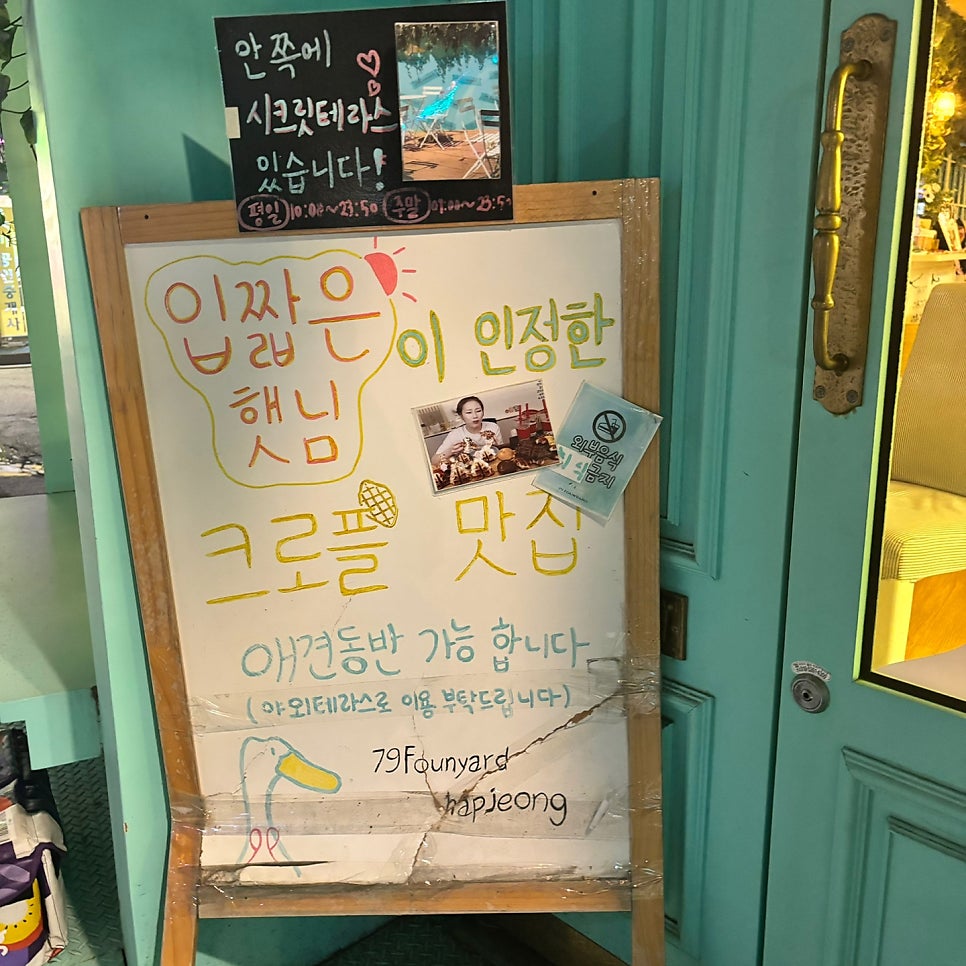 안쪽에
시크릿테라스
있습니다!
평일 10:00~23:50 주말 09:00~23:50
입짧은
햇님
이 인정한
외부음식
금지
크로플 맛집
애견동반 가능 합니다
(야외테라스로 이용 부탁드립니다)
79Founyard
hapjeong